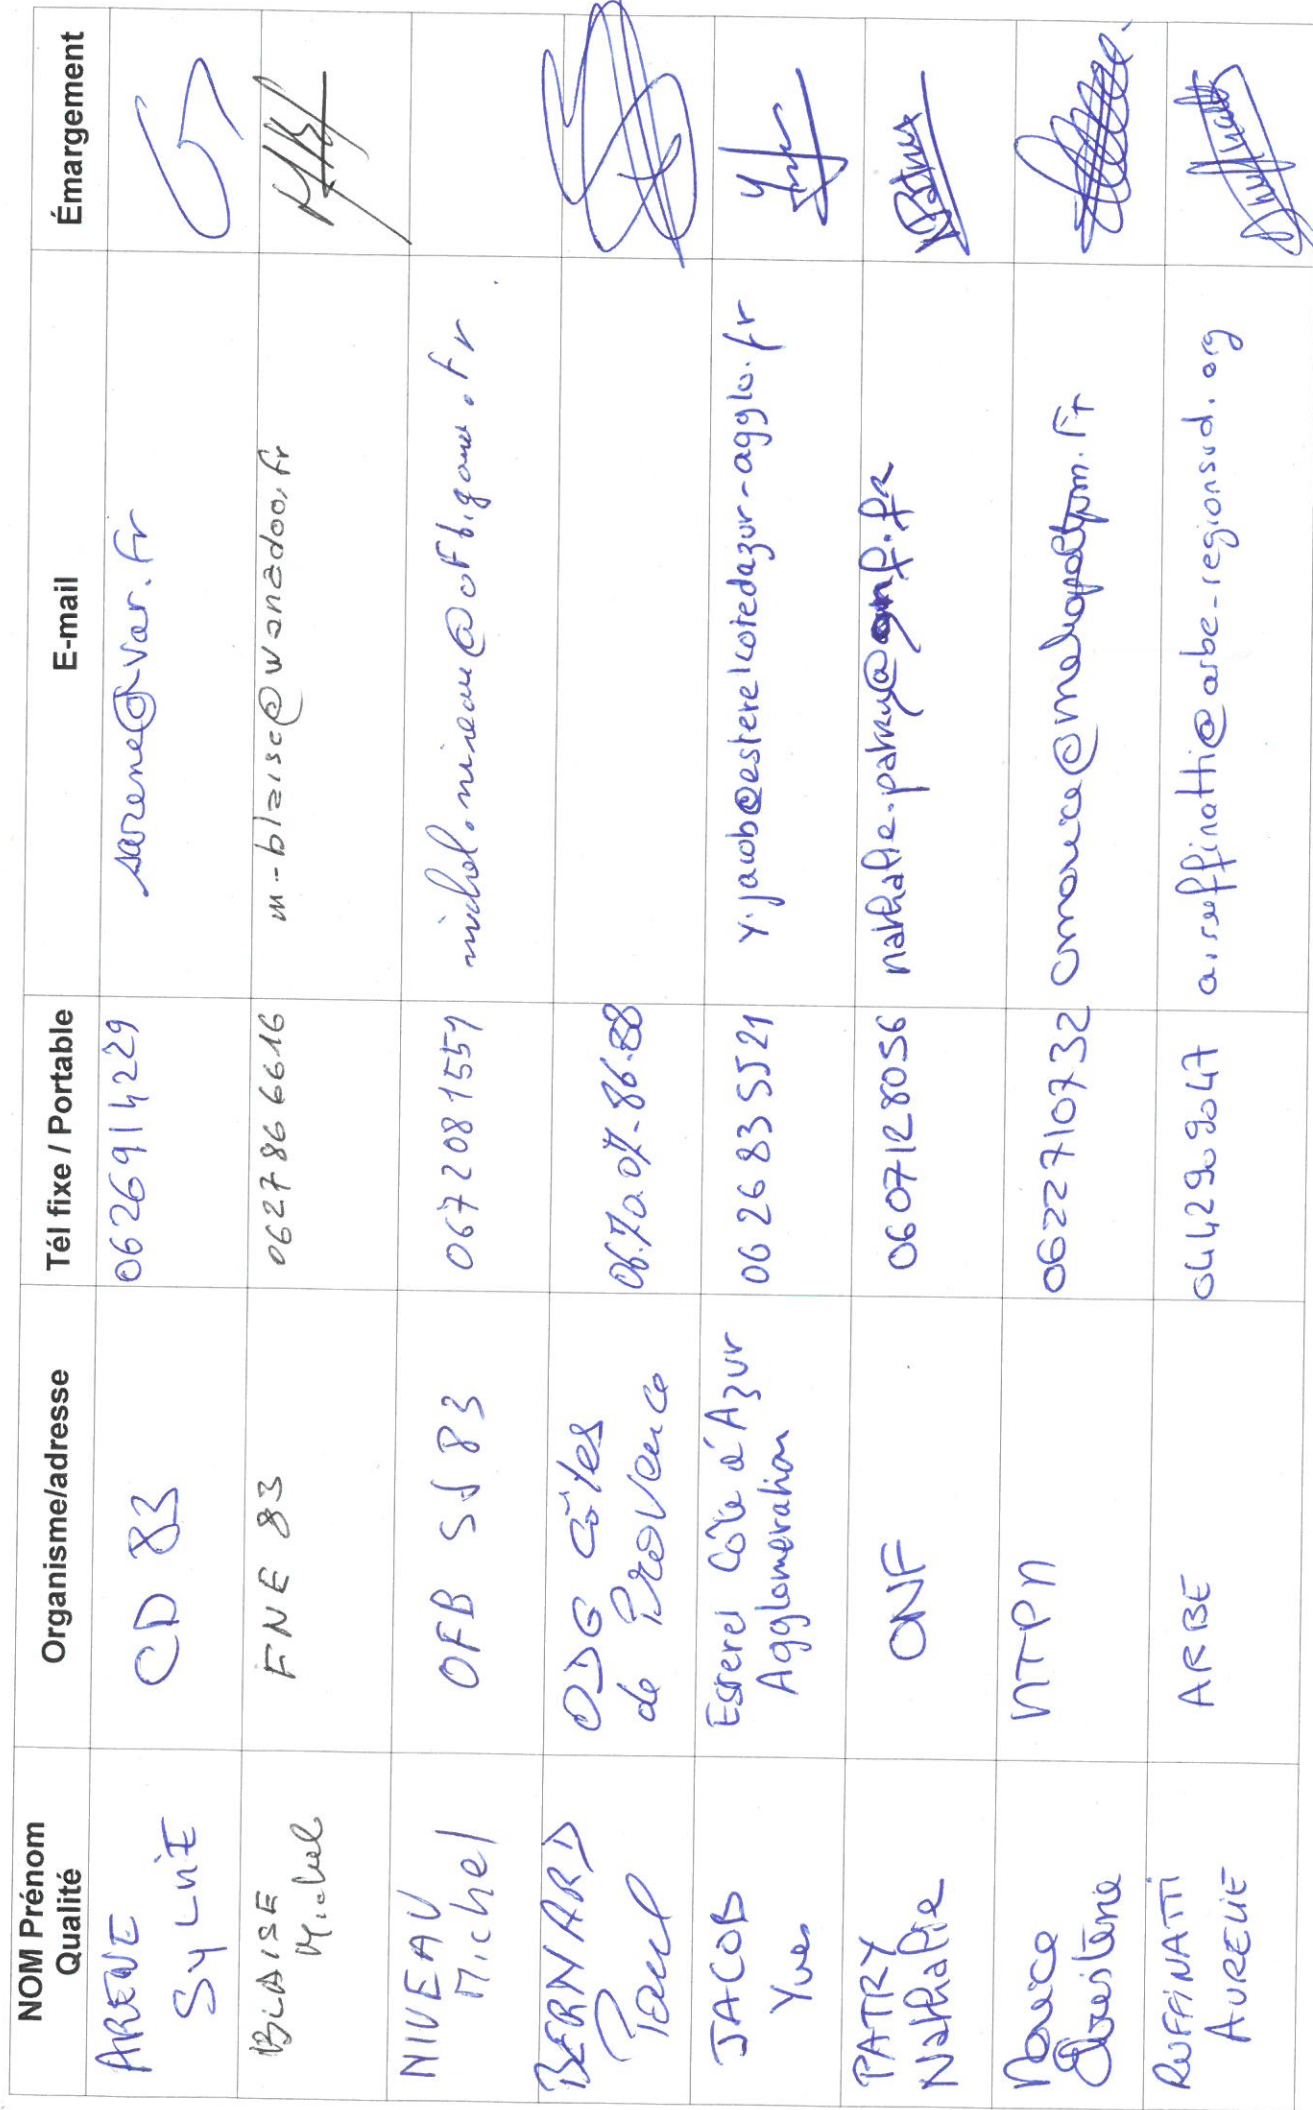 NOM Prénom
Qualité
Organisme/adresse
Tél fixe / Portable
E-mail
Émargement
ARENE
SYLVIE
CD 83
0626914229
sarene@var.fr
BLAISE
Michel
FNE 83
0627866616
m-blaise@wanadoo.fr
NIVEAU
Michel
OFB SD 83
0672081559
michel.niveau@ofb.gouv.fr
BERNARD
Paul
ODG Côtes
de Provence
06.70.07.86.88
JACOB
Yves
Esterel Côte d'Azur
Agglomération
0626835521
y.jacob@esterelcotedazur-agglo.fr
PATRY
Nathalie
ONF
0607128056
nathalie.patry@onf.fr
Christine
MTPM
0622710732
RUFFINATTI
AURELIE
ARBE
0442909047
a.ruffinatti@arbe-regionsud.org